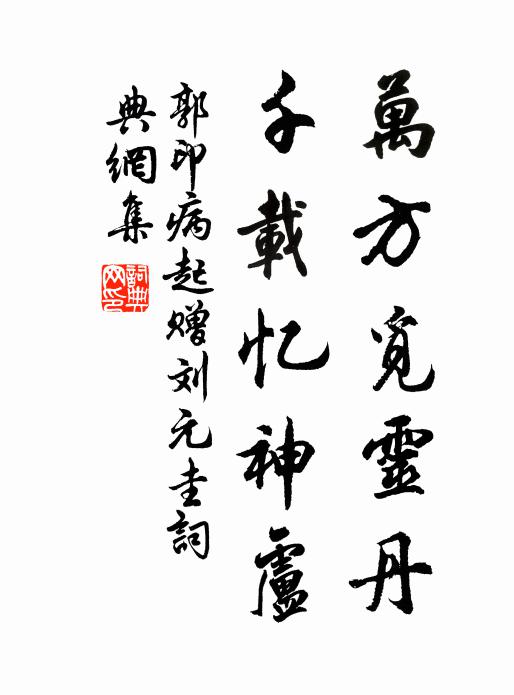 萬方覓靈丹
千載忆神盧
郭印病起赠刘元圭詞
典網集
詞典网印